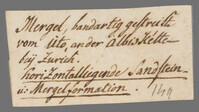 Mergel, bandartig gestreift
vom Uto, an der Albiskette
bÿ Zürich.
horizontalliegende Sandstein
u: Mergelformation.
144